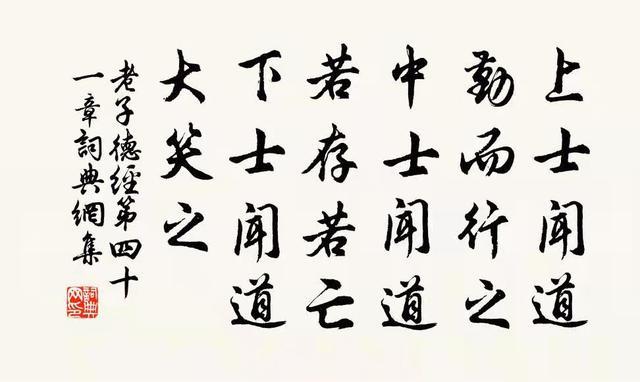 上士聞道
勤而行之
中士聞道
若存若亡
下士聞道
大笑之
老子德經第四十
一章詞典網集
詞典
网印